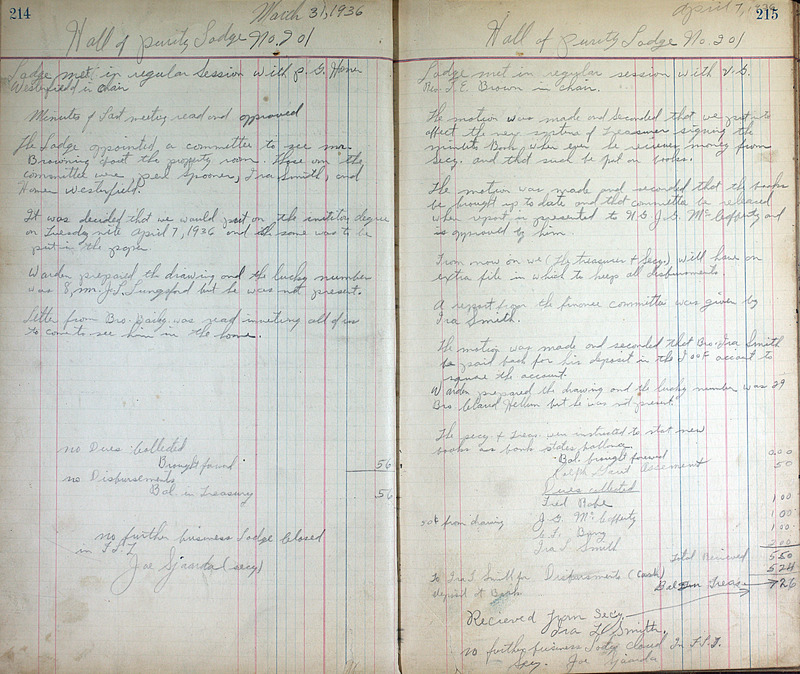 214
March 31, 1936
Hall of Purity Lodge No. 201
Lodge met in regular Session with P. G. Homer
Westerfield in chair
Minutes of Last meeting read and approved
The Lodge appointed a committee to see mr.
Browning about the property room. Those on the
committee were, Spooner, Ira Smith, and
Homer Westerfield.
It was decided that we would put on the inititory degree
on Tuesday nite April 7, 1936 and the same was to be
put in the paper.
Warden prepared the drawing and the lucky number
was 8, mr. J. L. Lungsford but he was not present.
Letter from Bro. Baily was read inveting all of us
to come to see him in the home.
no Dues Collected
Brought forward 56
no Disbursements
Bal. in Treasury 56
no further business Lodge Closed
in F. L. T.
Joe Sjaarda (secy)
215
April 7, 1936
Hall of Purity Lodge No. 201
Lodge met in regular session with V. G.
Rev. T. E. Brown in chair.
The motion was made and seconded that we put in
affect the new systum of Treasurer signing the
minute Book when ever he recieves money from
Secy. and that such be put on books.
The motion was made and seconded that the books
be brought up to date and that committee be released
when report is presented to N. G. J. G. McCafferty and
is approved by him.
From now on we (the treasurer & Secy.) will have an
extra file in which to keep all disbursments.
A report from the finance committee was given by
Ira Smith.
The motion was made and seconded that Bro. Ira Smith
be paid back for his deposit in the I.O.O.F. account to
square the account.
Warden prepared the drawing and the lucky number was 29
Bro. Claud but he was not present
The secy. & Treas. were instructed to start new
books as bank states ballance
Bal. brought forward 000
Ralph Assement 50
Dues collected
Fred 100
50¢ from drawing J. G. McCafferty 100
100
Ira L. Smith 200
Total Recieved 550
To Ira L. Smith for Disbursments (cash) 524
deposit at Bank Bal in Treas 726
Recieved from Secy.
Ira L. Smith.
no further business Lodge closed In F. L. T.
Secy. Joe Sjaarda